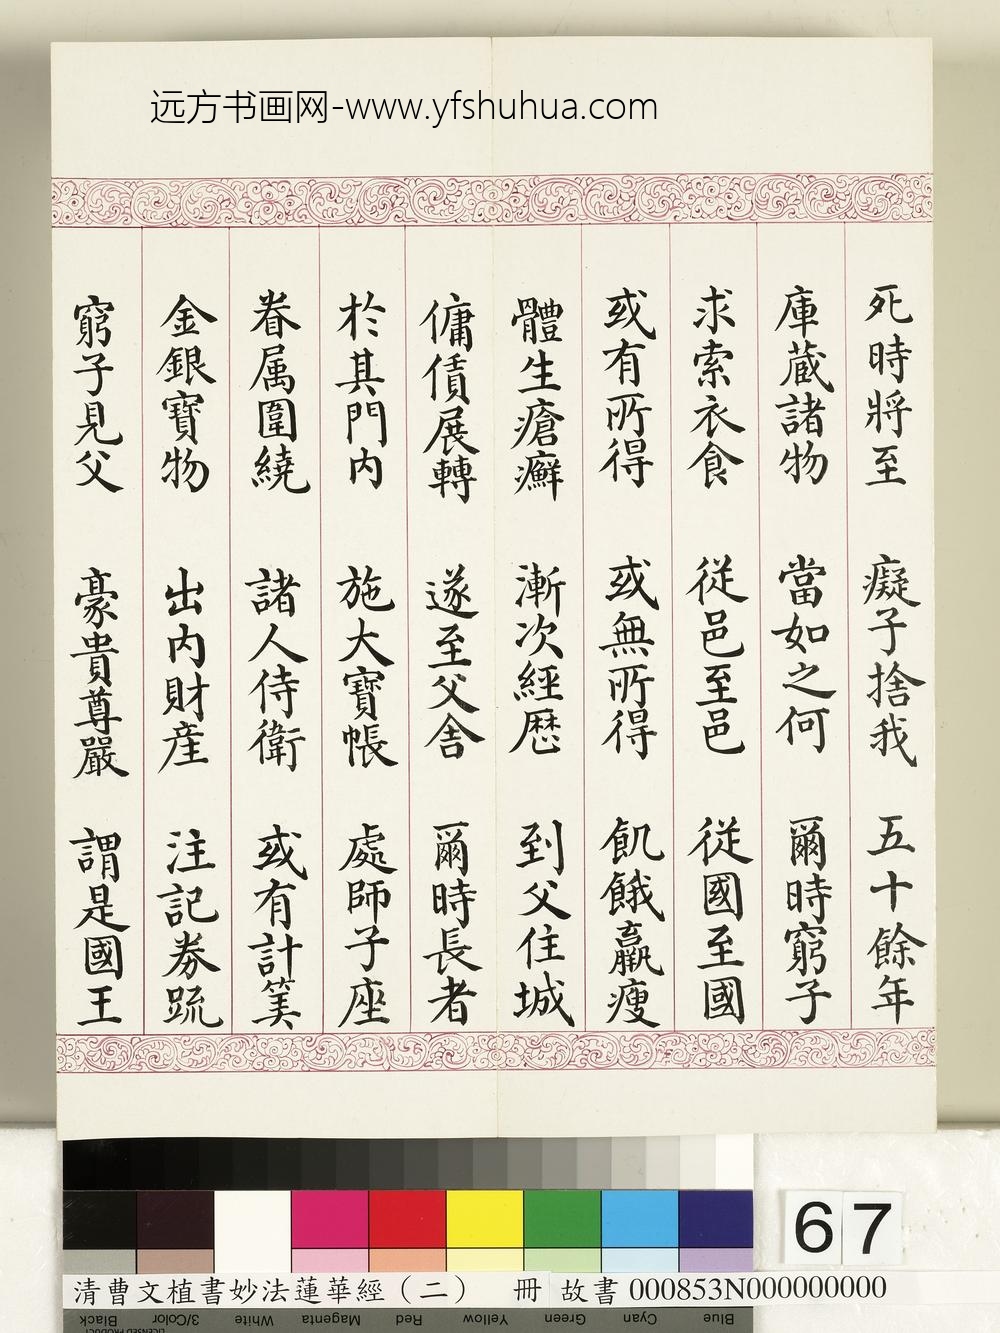 远方书画网-www.yfshuhua.com
死時將至 癡子捨我 五十餘年
庫蔵諸物 當如之何 爾時窮子
求索衣食 從邑至邑 從國至國
或有所得 或無所得 飢餓羸瘦
體生瘡癬 漸次經歷 到父住城
傭賃展轉 遂至父舍 爾時長者
於其門内 施大寶帳 處師子座
眷属圍繞 諸人侍衛 或有計筭
金銀寶物 出内財産 注記券疏
窮子見父 豪貴尊嚴 謂是國王
67
清曹文植書妙法蓮華經（二） 冊 故書 000853N000000000
Black 3/Color White Magenta Red Yellow Green Cyan Blue